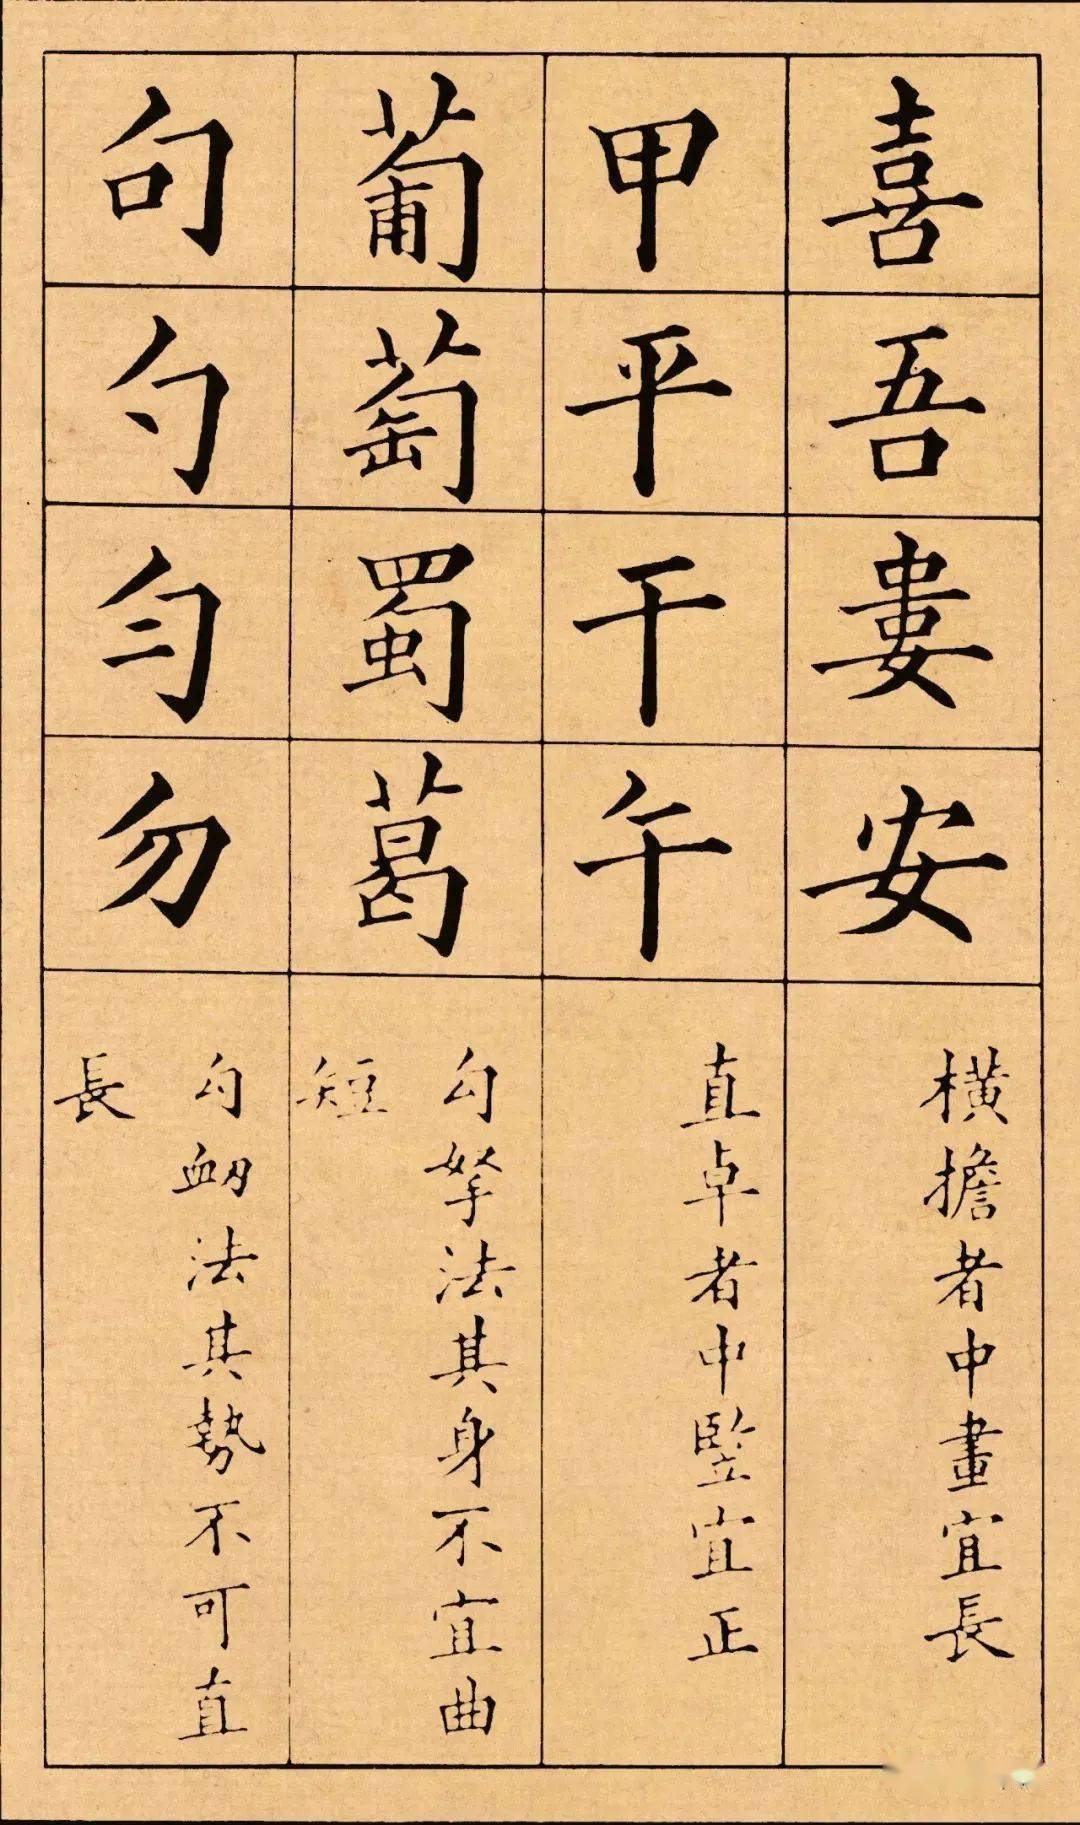 喜吾婁安
横擔者中畫宜長
甲平干午
直卓者中竪宜正
葡萄蜀葛
勾拏法其身不宜曲
短
句勺匀勿
勾衂法其勢不可直
長